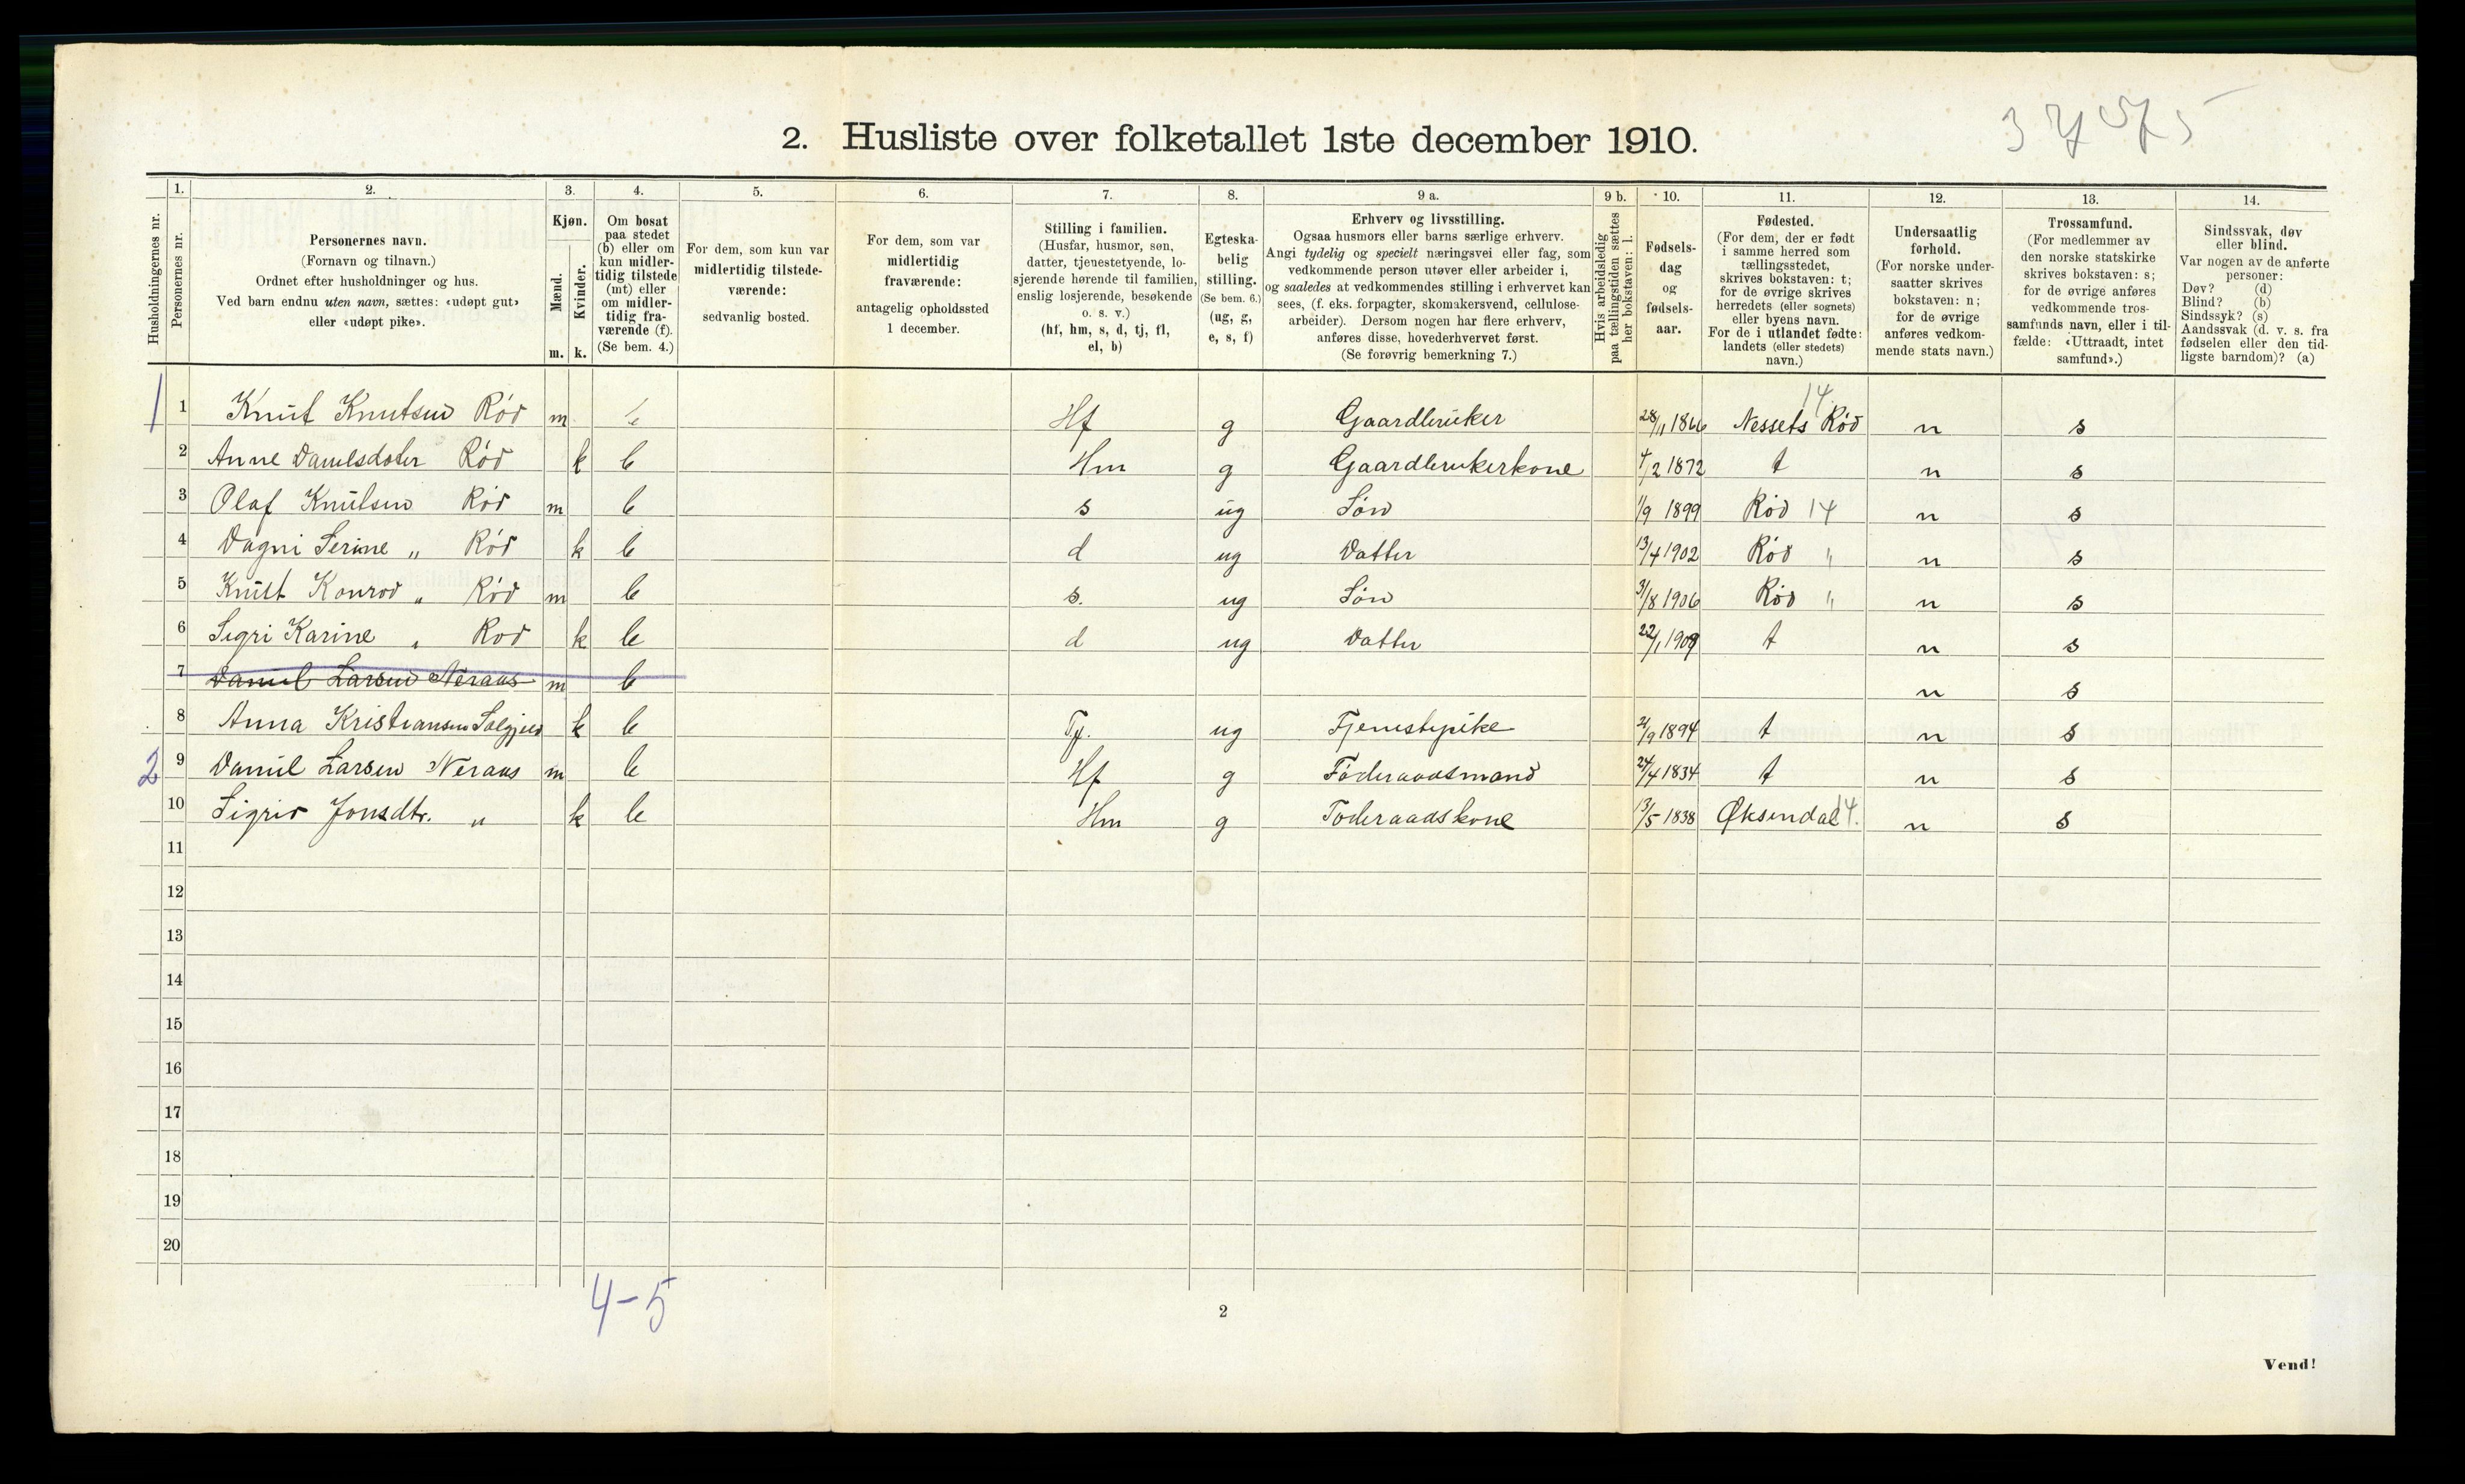 3 7 5 5
2. Husliste over folketallet 1ste december 1910.
Husholdningernes nr.
1. Personernes nr.
2. Personernes navn. (Fornavn og tilnavn.) Ordnet efter husholdninger og hus. Ved barn endnu uten navn, sættes: «udøpt gut» eller «udøpt pike».
3. Kjøn. Mænd. m. Kvinder. k.
4. Om bosat paa stedet (b) eller om kun midlertidig tilstede (mt) eller om midlertidig fraværende (f). (Se bem. 4.)
5. For dem, som kun var midlertidig tilstedeværende: sedvanlig bosted.
6. For dem, som var midlertidig fraværende: antagelig opholdssted 1 december.
7. Stilling i familien. (Husfar, husmor, søn, datter, tjenestetyende, losjerende hørende til familien, enslig losjerende, besøkende o. s. v.) (hf, hm, s, d, tj, fl, el, b)
8. Egteskabelig stilling. (Se bem. 6.) (ug, g, e, s, f)
9 a. Erhverv og livsstilling. Ogsaa husmors eller barns særlige erhverv. Angi tydelig og specielt næringsvei eller fag, som vedkommende person utøver eller arbeider i, og saaledes at vedkommendes stilling i erhvervet kan sees, (f. eks. forpagter, skomakersvend, cellulosearbeider). Dersom nogen har flere erhverv, anføres disse, hovederhvervet først. (Se forøvrig bemerkning 7.)
9 b. Hvis arbeidsledig paa tællingstiden sættes her bokstaven: l.
10. Fødselsdag og fødselsaar.
11. Fødested. (For dem, der er født i samme herred som tællingsstedet, skrives bokstaven: t; for de øvrige skrives herredets (eller sognets) eller byens navn. For de i utlandet fødte: landets (eller stedets) navn.)
12. Undersaatlig forhold. (For norske undersaatter skrives bokstaven: n; for de øvrige anføres vedkommende stats navn.)
13. Trossamfund. (For medlemmer av den norske statskirke skrives bokstaven: s; for de øvrige anføres vedkommende trossamfunds navn, eller i tilfælde: «Uttraadt, intet samfund».)
14. Sindssvak, døv eller blind. Var nogen av de anførte personer: Døv? (d) Blind? (b) Sindssyk? (s) Aandssvak (d. v. s. fra fødselen eller den tidligste barndom)? (a)
1 1 Knut Knutsen Rød m b Hf g Gaardbruker 28/11 1866 Nessets Rød 14 n s
2 Anne Danielsdoter Rød k b Hm g Gaardbrukerkone 4/2 1872 t n s
3 Olaf Knutsen Rød m b s ug Søn 1/9 1899 Rød 14 n s
4 Dagni Serine " Rød k b d ug Datter 13/4 1902 Rød " n s
5 Knut Konrod " Rød m b s. ug Søn 3/8 1906 Rød " n s
6 Sigri Karine " Rod k b d ug Datter 22/1 1909 t n s
7 Daniel Larsen Neraas m b n s
8 Anna Kristiansen k b Tj. ug Tjenestepike 21/9 1894 t n s
2 9 Daniel Larsen Neraas m b Hf g Føderaadsmand 24/4 1834 t n s
10 Sigrid Jonsdtr. " k b Hm g Føderaadskone 13/5 1838 Øksendal 14. n s
11
12
13
14
15
16
17
18
19
20
4-5
2
Vend!